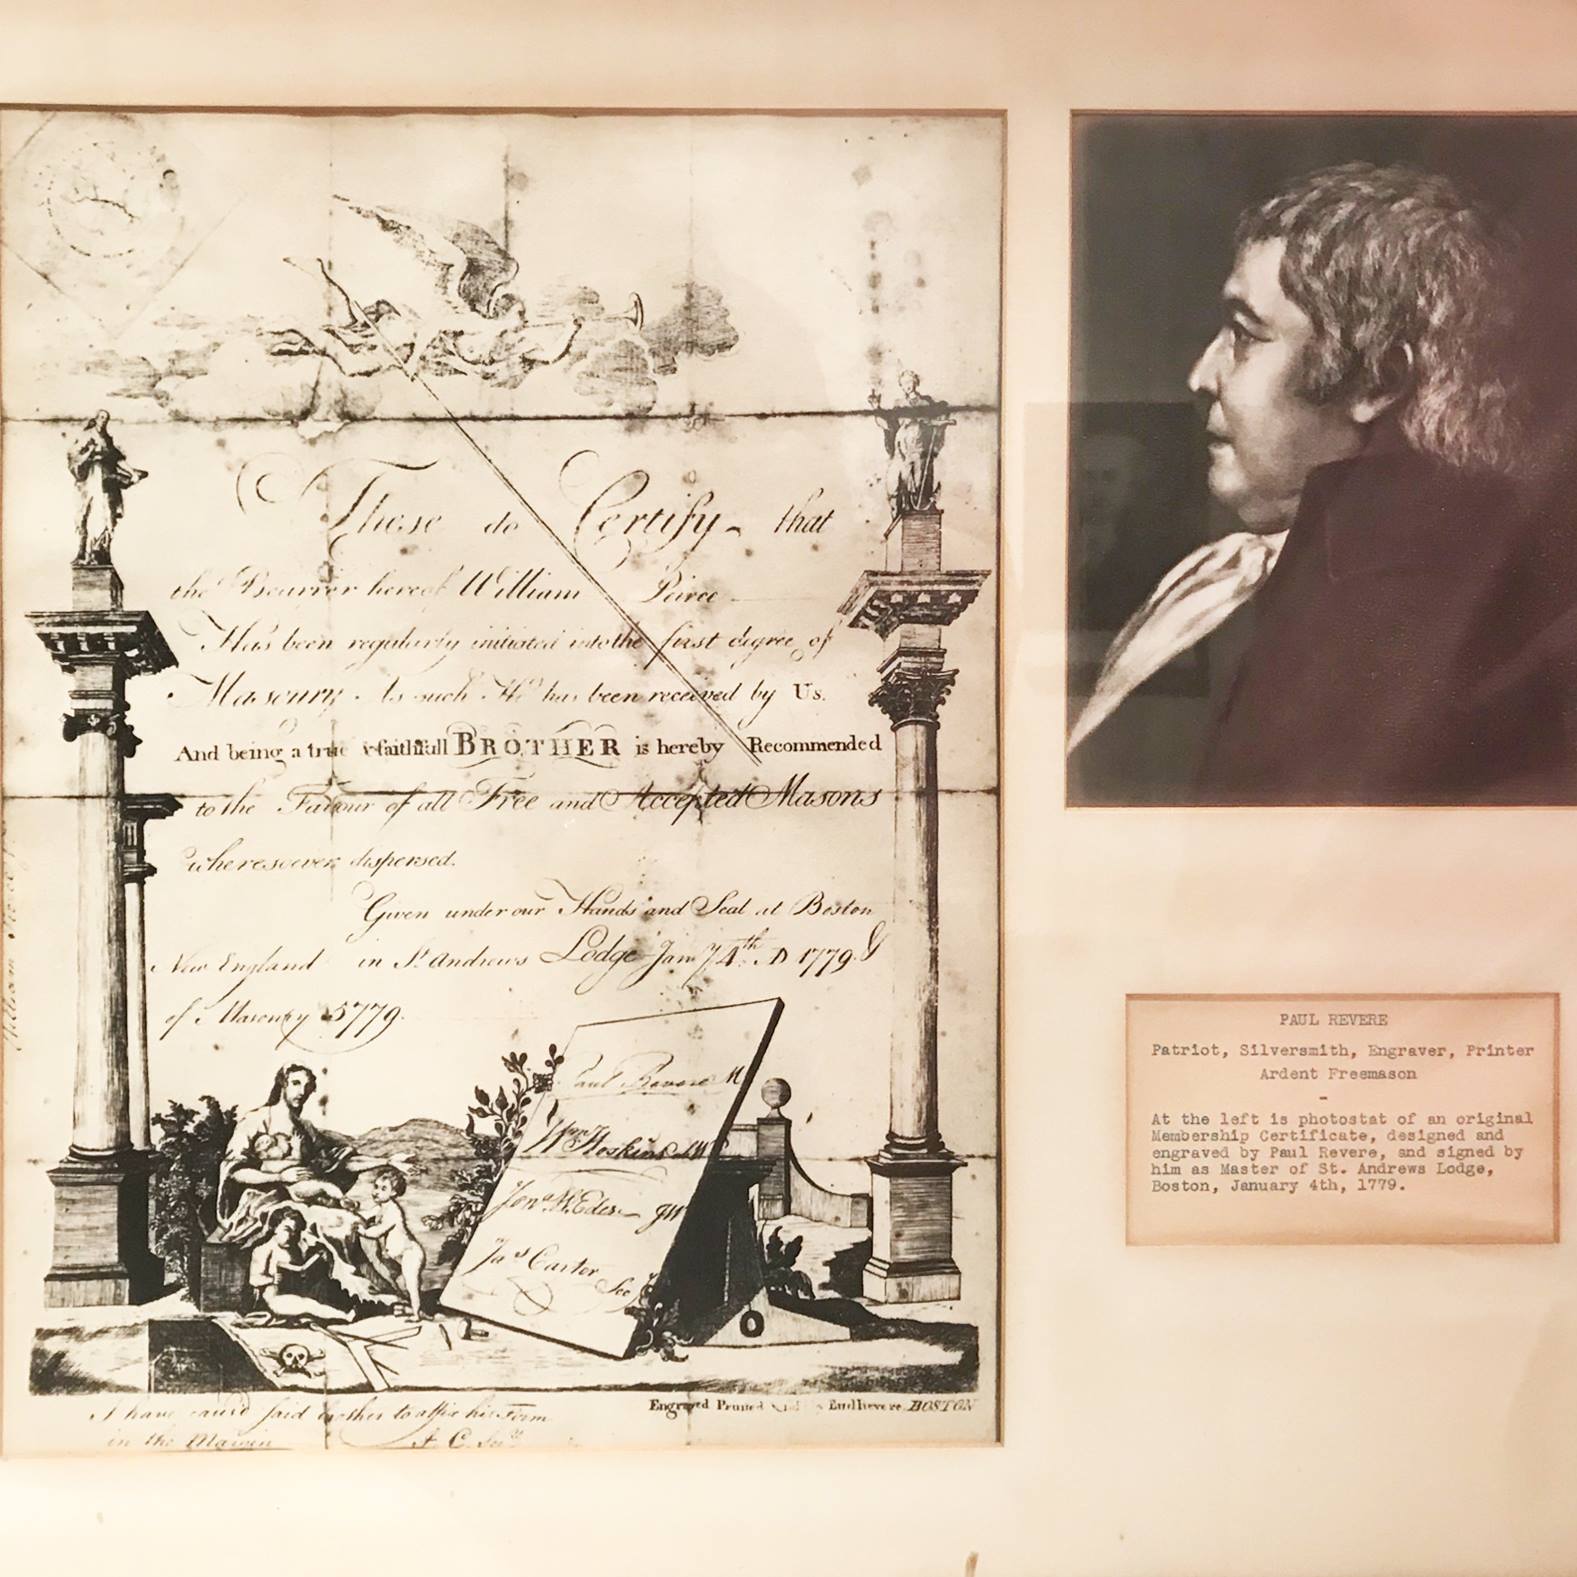 These do Certify that
the Bearrer hereof William Peirce
Has been regularly initiated into the first degree of
Masonry. As such He has been received by Us.
And being a true & faithfull BROTHER is hereby Recommended
to the Favour of all Free and Accepted Masons
wheresoever dispersed.
Given under our Hands and Seal at Boston
New England in St. Andrews Lodge Jany 4th. AD 1779 &
of Masonry 5779.
Paul Revere M
Wm Hoskins SW
Jona. W. Edes JW
Jas Carter Secy
I have caus'd said brother to affix his
in the Margin
Engraved Printed & Sold by Paul Revere BOSTON
PAUL REVERE
Patriot, Silversmith, Engraver, Printer
Ardent Freemason
-
At the left is photostat of an original
Membership Certificate, designed and
engraved by Paul Revere, and signed by
him as Master of St. Andrews Lodge,
Boston, January 4th, 1779.